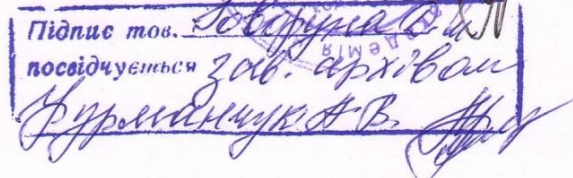 Підпис тов. Говоруна
посвідчується зав. архівом
Фурманчук А В.